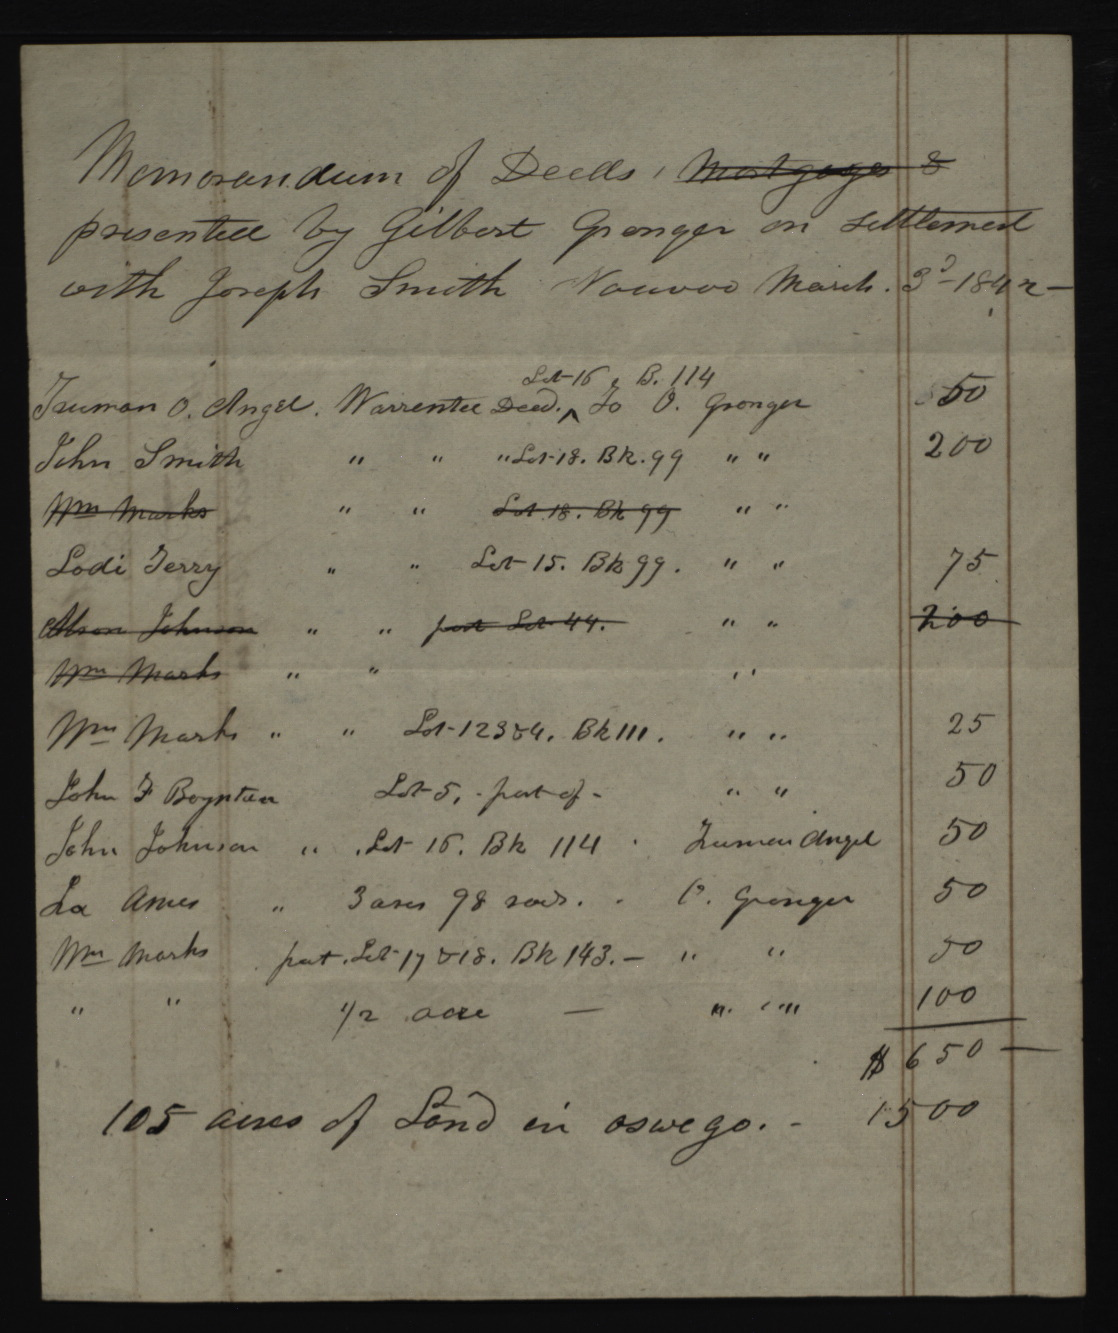 Memorandum of Deeds, Mortgages &
presented by Gilbert Granger on settlement
with Joseph Smith Nauvoo March. 3d - 1842 -
Lot 16, B. 114
Truman O. Angel. Warrentee Deed. ^ To O. Granger 50
John Smith " " " Lot 18. Bk. 99 " " 200
Wm Marks " " Lot 18. Bk 99 " "
Lodi Terry " " Lot 15. Bk 99. " " 75
Alson Johnson " " part Lot 44. " " 200
Wm Marks " " "
Wm Marks " " Lot 1 2 3 & 4. Bk 111. " " 25
John F Boynton Lot 5, - part of - " " 50
John Johnson " Lot 16. Bk 114 Truman Angel 50
Ira Ames " 3 acres 98 rods. O. Granger 50
Wm Marks part. Lot 17 & 18. Bk 143. - " " 50
" " 1/2 acre — " " " 100
$ 650 —
105 acres of Land in oswego. - 1500